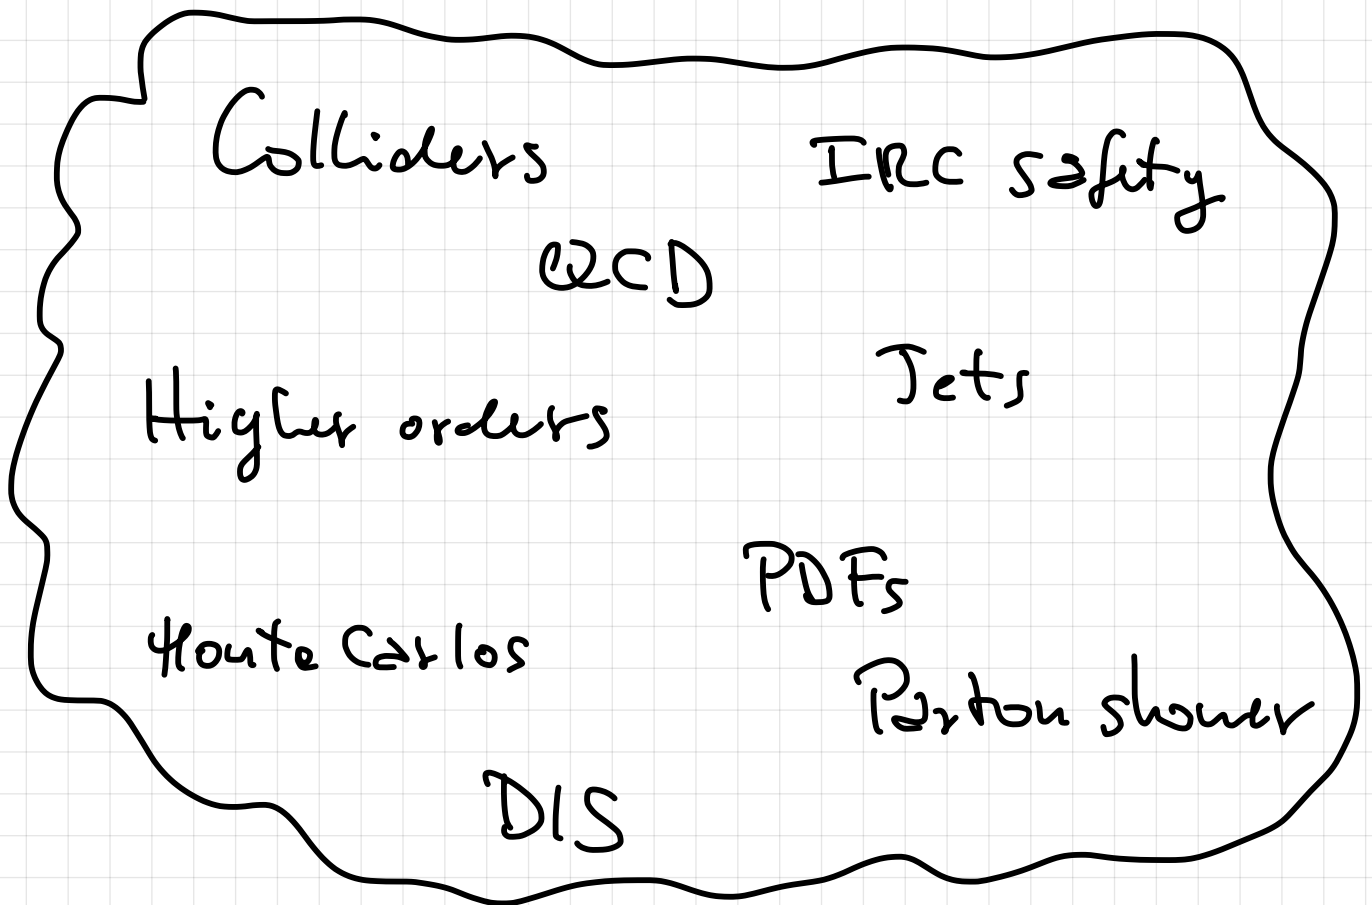 Colliders
IRC safety
QCD
Jets
Higher orders
PDFs
Monte Carlos
Parton shower
DIS